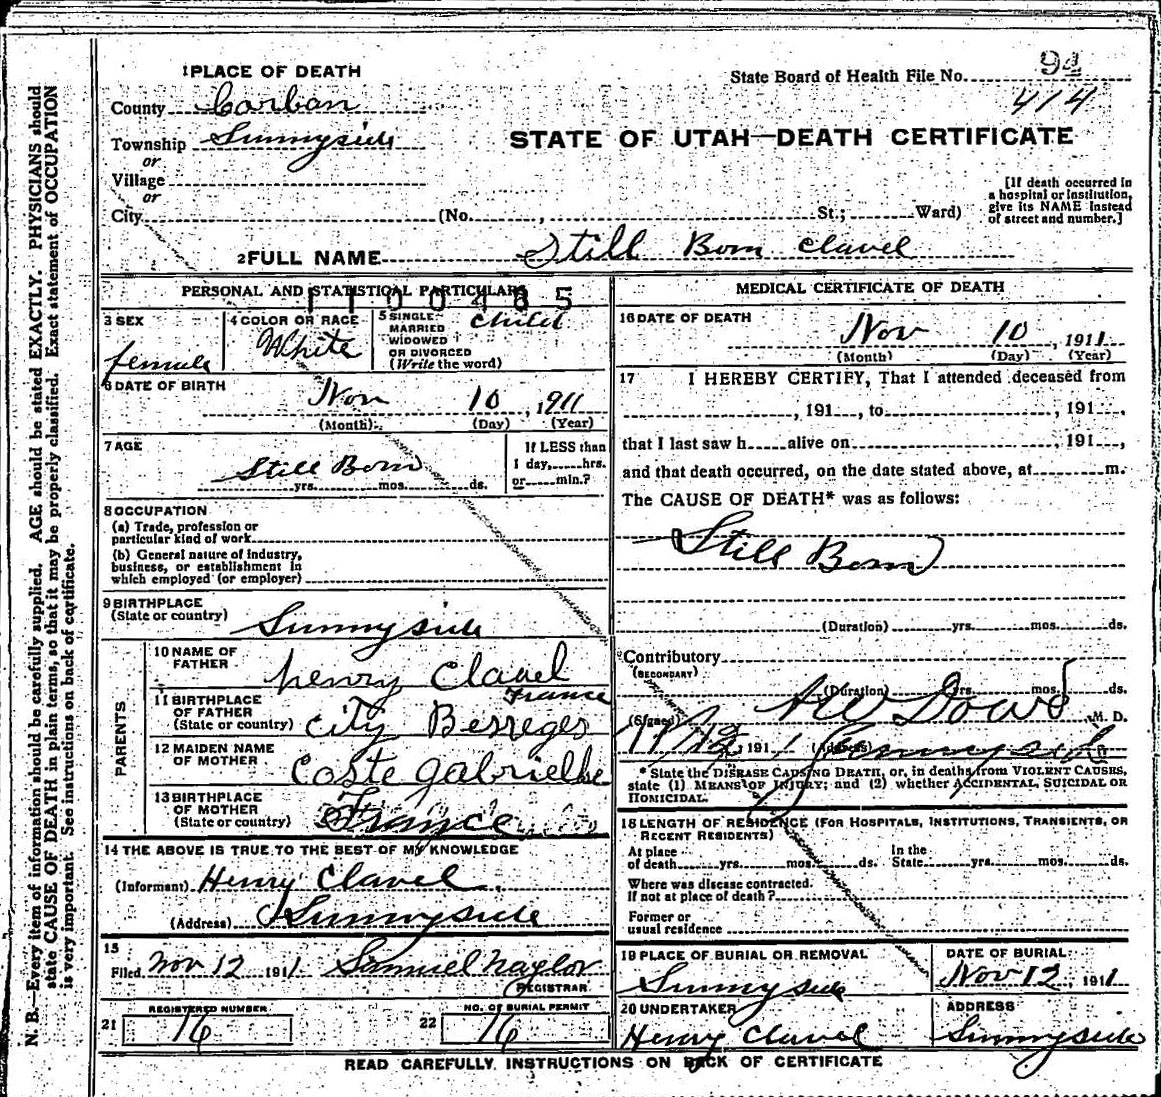 1 PLACE OF DEATH
State Board of Health File No. 94
414
County Carbon
Township Sunnyside
or
Village
or
City (No. , St.; Ward)
STATE OF UTAH—DEATH CERTIFICATE
[If death occurred in
a hospital or institution,
give its NAME instead
of street and number.]
2 FULL NAME Still Born Clavel
PERSONAL AND STATISTICAL PARTICULARS
1100465
3 SEX
female
4 COLOR OR RACE
White
5 SINGLE
MARRIED
WIDOWED
OR DIVORCED
(Write the word)
child
6 DATE OF BIRTH
Nov 10, 1911
(Month) (Day) (Year)
7 AGE
Still Born
yrs. mos. ds.
If LESS than
1 day, hrs.
or min.?
8 OCCUPATION
(a) Trade, profession or
particular kind of work
(b) General nature of industry,
business, or establishment in
which employed (or employer)
9 BIRTHPLACE
(State or country)
Sunnyside
PARENTS
10 NAME OF
FATHER
henry Clavel
11 BIRTHPLACE
OF FATHER
(State or country)
France
City Besseges
12 MAIDEN NAME
OF MOTHER
Coste gabrielle
13 BIRTHPLACE
OF MOTHER
(State or country)
France
14 THE ABOVE IS TRUE TO THE BEST OF MY KNOWLEDGE
(Informant) Henry Clavel
(Address) Sunnyside
15
Filed Nov 12, 1911 Samuel Naylor
REGISTRAR
21 REGISTERED NUMBER
16
22 NO. OF BURIAL PERMIT
16
MEDICAL CERTIFICATE OF DEATH
16 DATE OF DEATH
Nov 10, 1911
(Month) (Day) (Year)
17 I HEREBY CERTIFY, That I attended deceased from
, 191 , to , 191 ,
that I last saw h alive on , 191 ,
and that death occurred, on the date stated above, at m.
The CAUSE OF DEATH* was as follows:
Still Born
(Duration) yrs. mos. ds.
Contributory
(SECONDARY)
(Duration) yrs. mos. ds.
(Signed) A W Dowd M. D.
11/12, 1911 (Address) Sunnyside
* State the DISEASE CAUSING DEATH, or, in deaths from VIOLENT CAUSES,
state (1) MEANS OF INJURY; and (2) whether ACCIDENTAL, SUICIDAL OR
HOMICIDAL.
18 LENGTH OF RESIDENCE (FOR HOSPITALS, INSTITUTIONS, TRANSIENTS, OR
RECENT RESIDENTS)
At place
of death yrs. mos. ds.
In the
State yrs. mos. ds.
Where was disease contracted.
If not at place of death?
Former or
usual residence
19 PLACE OF BURIAL OR REMOVAL
Sunnyside
DATE OF BURIAL
Nov 12, 1911
20 UNDERTAKER
Henry Clavel
ADDRESS
Sunnyside
READ CAREFULLY INSTRUCTIONS ON BACK OF CERTIFICATE
N. B.—Every item of information should be carefully supplied. AGE should be stated EXACTLY. PHYSICIANS should
state CAUSE OF DEATH in plain terms, so that it may be properly classified. Exact statement of OCCUPATION
is very important. See instructions on back of certificate.